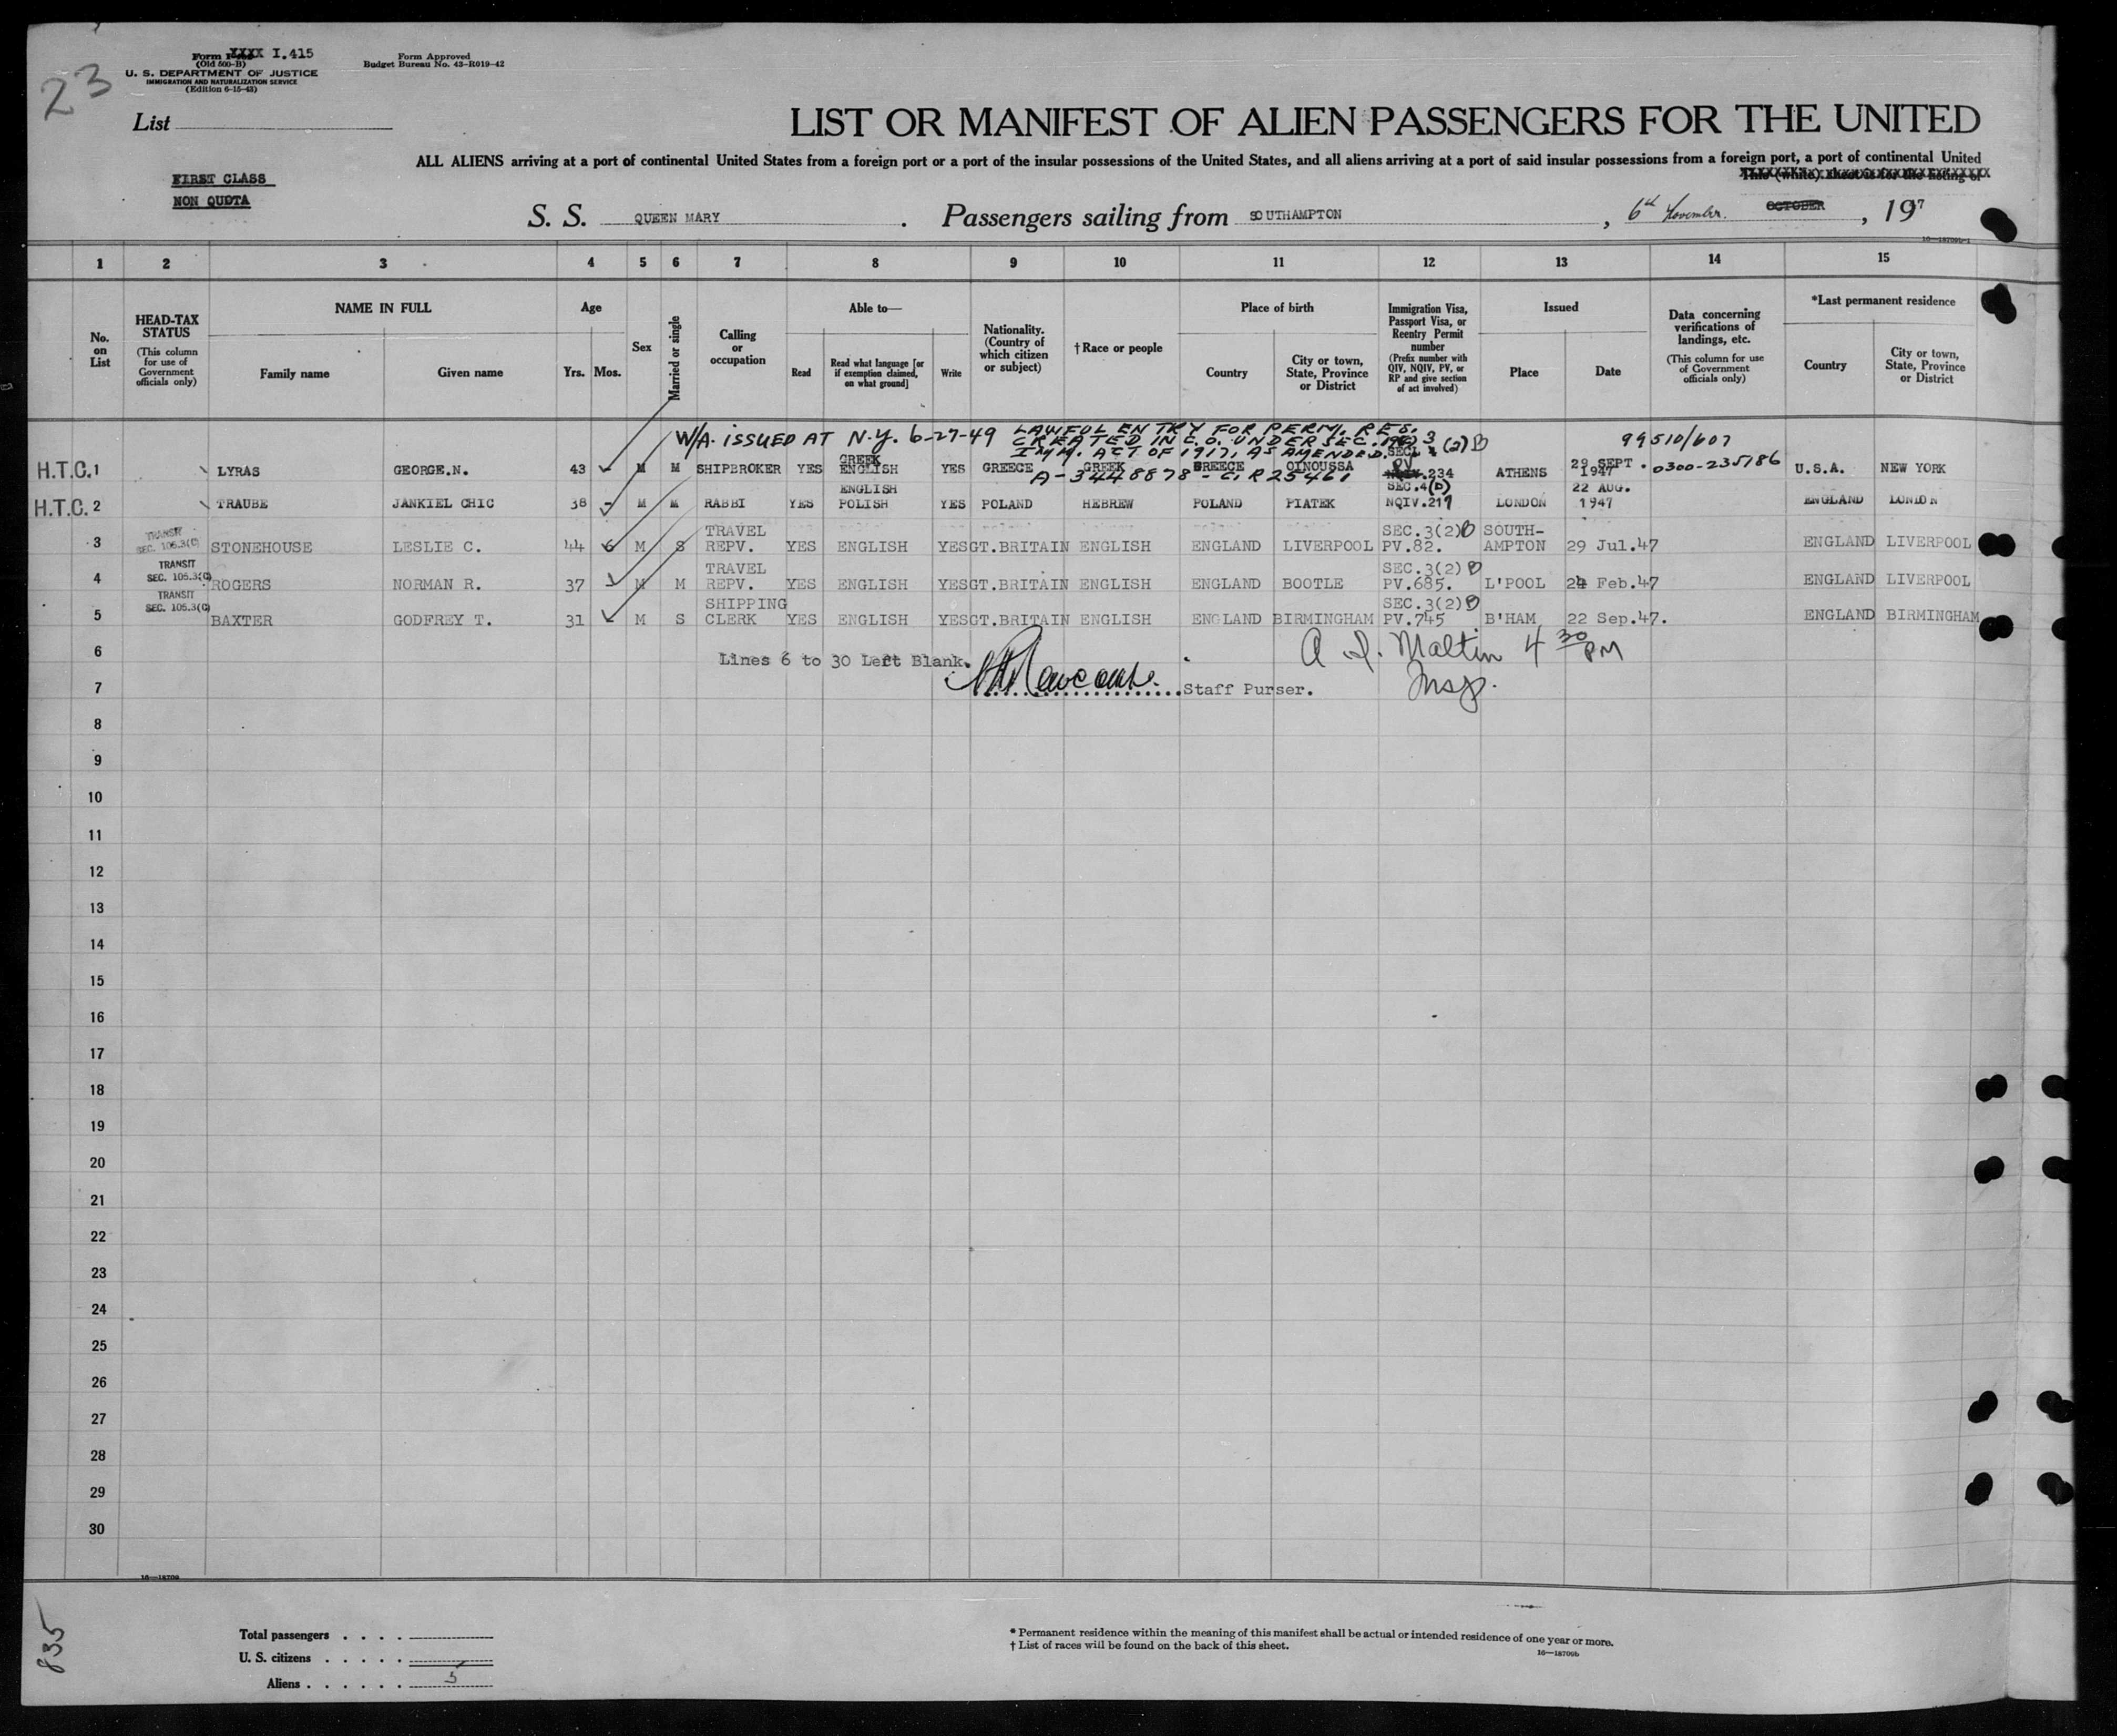 23
Form XXXX I.415
(Old 500-B)
U. S. DEPARTMENT OF JUSTICE
IMMIGRATION AND NATURALIZATION SERVICE
(Edition 6-15-43)
Form Approved
Budget Bureau No. 43-R019-42
List
LIST OR MANIFEST OF ALIEN PASSENGERS FOR THE UNITED
ALL ALIENS arriving at a port of continental United States from a foreign port or a port of the insular possessions of the United States, and all aliens arriving at a port of said insular possessions from a foreign port, a port of continental United
This (white) sheet is for the listing of
FIRST CLASS
NON QUOTA
S. S. QUEEN MARY . Passengers sailing from SOUTHAMPTON , 6th November. OCTOBER , 19 7
16—18709b-1
1 2 3 4 5 6 7 8 9 10 11 12 13 14 15
No. on List
HEAD-TAX STATUS
(This column for use of Government officials only)
NAME IN FULL
Family name Given name
Age
Yrs. Mos.
Sex
Married or single
Calling or occupation
Able to—
Read Read what language [or if exemption claimed, on what ground] Write
Nationality. (Country of which citizen or subject)
†Race or people
Place of birth
Country City or town, State, Province or District
Immigration Visa, Passport Visa, or Reentry Permit number
(Prefix number with QIV, NQIV, PV, or RP and give section of act involved)
Issued
Place Date
Data concerning verifications of landings, etc.
(This column for use of Government officials only)
*Last permanent residence
Country City or town, State, Province or District
W/A. ISSUED AT N.Y. 6-27-49 LAWFUL ENTRY FOR PERM. RES.
CREATED IN C.O. UNDER SEC. 19(c)
IMM. ACT OF 1917, AS AMENDED
A-3448878 - C.R 25461
99510/607
H.T.C. 1 LYRAS GEORGE.N. 43 M M SHIPBROKER YES GREEK ENGLISH YES GREECE GREEK GREECE OINOUSSA SEC. 3 (2) B PV .234 ATHENS 29 SEPT. 1947 0300-235186 U.S.A. NEW YORK
H.T.C. 2 TRAUBE JANKIEL CHIC 38 M M RABBI YES ENGLISH POLISH YES POLAND HEBREW POLAND PIATEK SEC.4(D) NQIV.217 LONDON 22 AUG. 1947 ENGLAND LONDON
3 TRANSIT SEC. 105.3(C) STONEHOUSE LESLIE C. 44 6 M S TRAVEL REPV. YES ENGLISH YES GT.BRITAIN ENGLISH ENGLAND LIVERPOOL SEC.3(2)B PV.82. SOUTH-AMPTON 29 Jul.47 ENGLAND LIVERPOOL
4 TRANSIT SEC. 105.3(C) ROGERS NORMAN R. 37 M M TRAVEL REPV. YES ENGLISH YES GT.BRITAIN ENGLISH ENGLAND BOOTLE SEC.3(2)B PV.685. L'POOL 24 Feb.47 ENGLAND LIVERPOOL
5 TRANSIT SEC. 105.3(C) BAXTER GODFREY T. 31 M S SHIPPING CLERK YES ENGLISH YES GT.BRITAIN ENGLISH ENGLAND BIRMINGHAM SEC.3(2)B PV.745 B'HAM 22 Sep.47. ENGLAND BIRMINGHAM
6 Lines 6 to 30 Left Blank. A. I. Maltin 4 30 PM
7 Staff Purser. Insp.
8
9
10
11
12
13
14
15
16
17
18
19
20
21
22
23
24
25
26
27
28
29
30
16—18709
835
Total passengers . . . .
U. S. citizens . . . . .
Aliens . . . . . . 5
* Permanent residence within the meaning of this manifest shall be actual or intended residence of one year or more.
† List of races will be found on the back of this sheet.
16—18709b